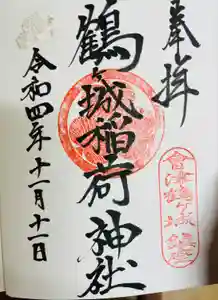 奉拝
鶴ヶ城稲荷神社
令和四年十一月十一日
會津鶴ヶ城鎮座